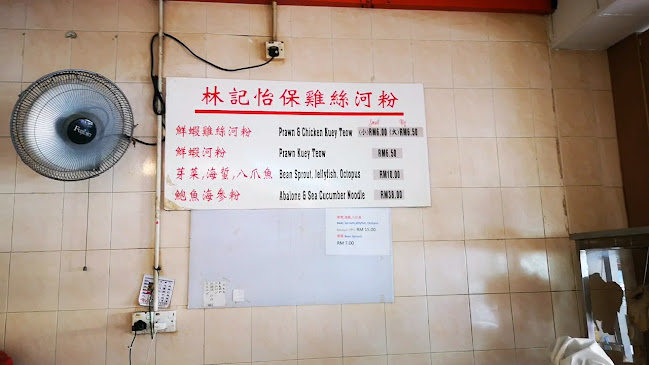 林記怡保雞絲河粉
Small Big
鮮蝦雞絲河粉 Prawn & Chicken Kuey Teow (小)RM6.00 (大)RM6.50
鮮蝦河粉 Prawn Kuey Teow RM6.50
芽菜,海蜇,八爪魚 Bean Sprout, Jellyfish, Octopus RM10.00
鮑魚海參粉 Abalone & Sea Cucumber Noodle RM38.00
Bean Sprouts, Jellyfish, Octopus
RM 15.00
Bean Sprouts
RM 7.00